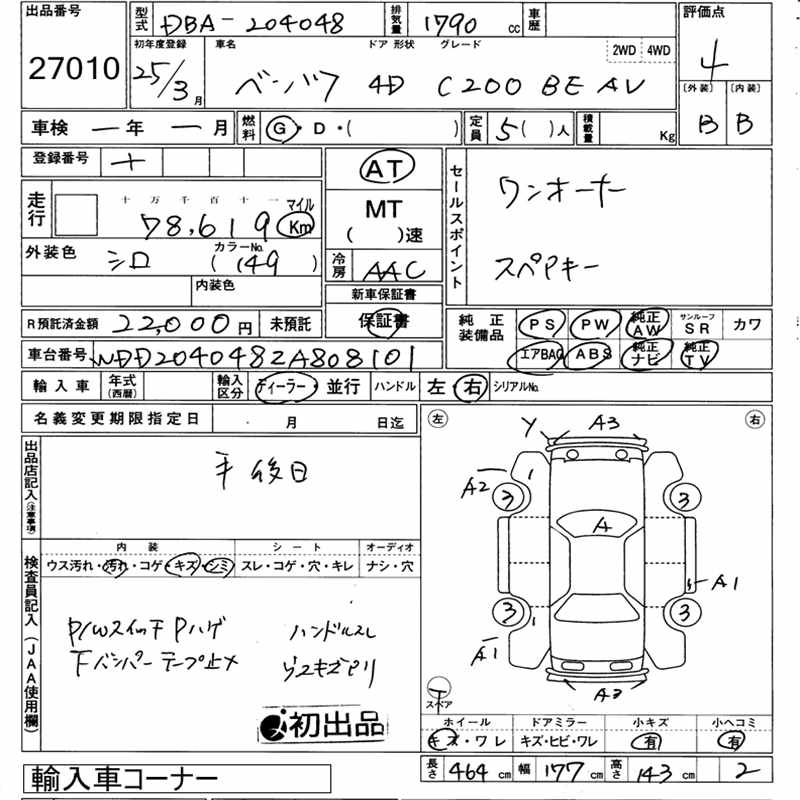 出品番号 型式 DBA-204048 排気量 1790 cc 車歴 評価点
27010 初年度登録 車名 ドア 形状 グレード 2WD 4WD 4
25/3月 ベンツ 4D C200 BE AV 〔外装〕〔内装〕
車検 ー年 ー月 燃料 G・D・( ) 定員 5( )人 積載量 Kg B B
登録番号 AT セールスポイント ワンオーナー
走行 十万千百十一 マイル MT
78,619 Km ( )速
外装色 シロ カラーNo. (149) 冷房 AAC スペアキー
内装色 新車保証書
R預託済金額 22,000円 未預託 保証書 純正装備品 PS PW 純正AW サンルーフSR カワ
車台番号 WDD2040482A808101 エアBAG ABS 純正ナビ 純正TV
輸入車 年式(西暦) 輸入区分 ディーラー・並行 ハンドル 左・右 シリアルNo.
名義変更期限指定日 月 日迄
左 右
出品店記入(注意事項) 後日
Y A3
A2 1
3 3
A
検査員記入(JAA使用欄) 内装 シート オーディオ
ウス汚れ・汚れ・コゲ・キズ・シミ スレ・コゲ・穴・キレ ナシ・穴
A1
3 3
P/Wスイッチ Pハゲ ハンドルスレ
1
Fバンパー テープ止メ ウスキズアリ
A1
A2
スペア
初出品
ホイール ドアミラー 小キズ 小ヘコミ
キズ・ワレ キズ・ヒビ・ワレ 有 有
輸入車コーナー 長さ 464cm 幅 177cm 高さ 143cm 2